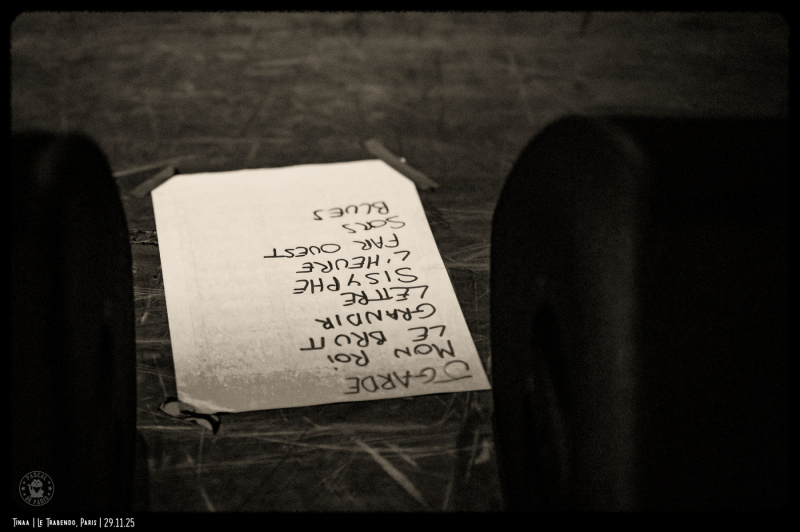 JGARDE
MON ROI
LE BRUIT
GRANDIR
LETTRE
SISYPHE
L'HEURE
FAR OUEST
SORS
BLUES
TINAA | LE TRABENDO, PARIS | 29.11.25